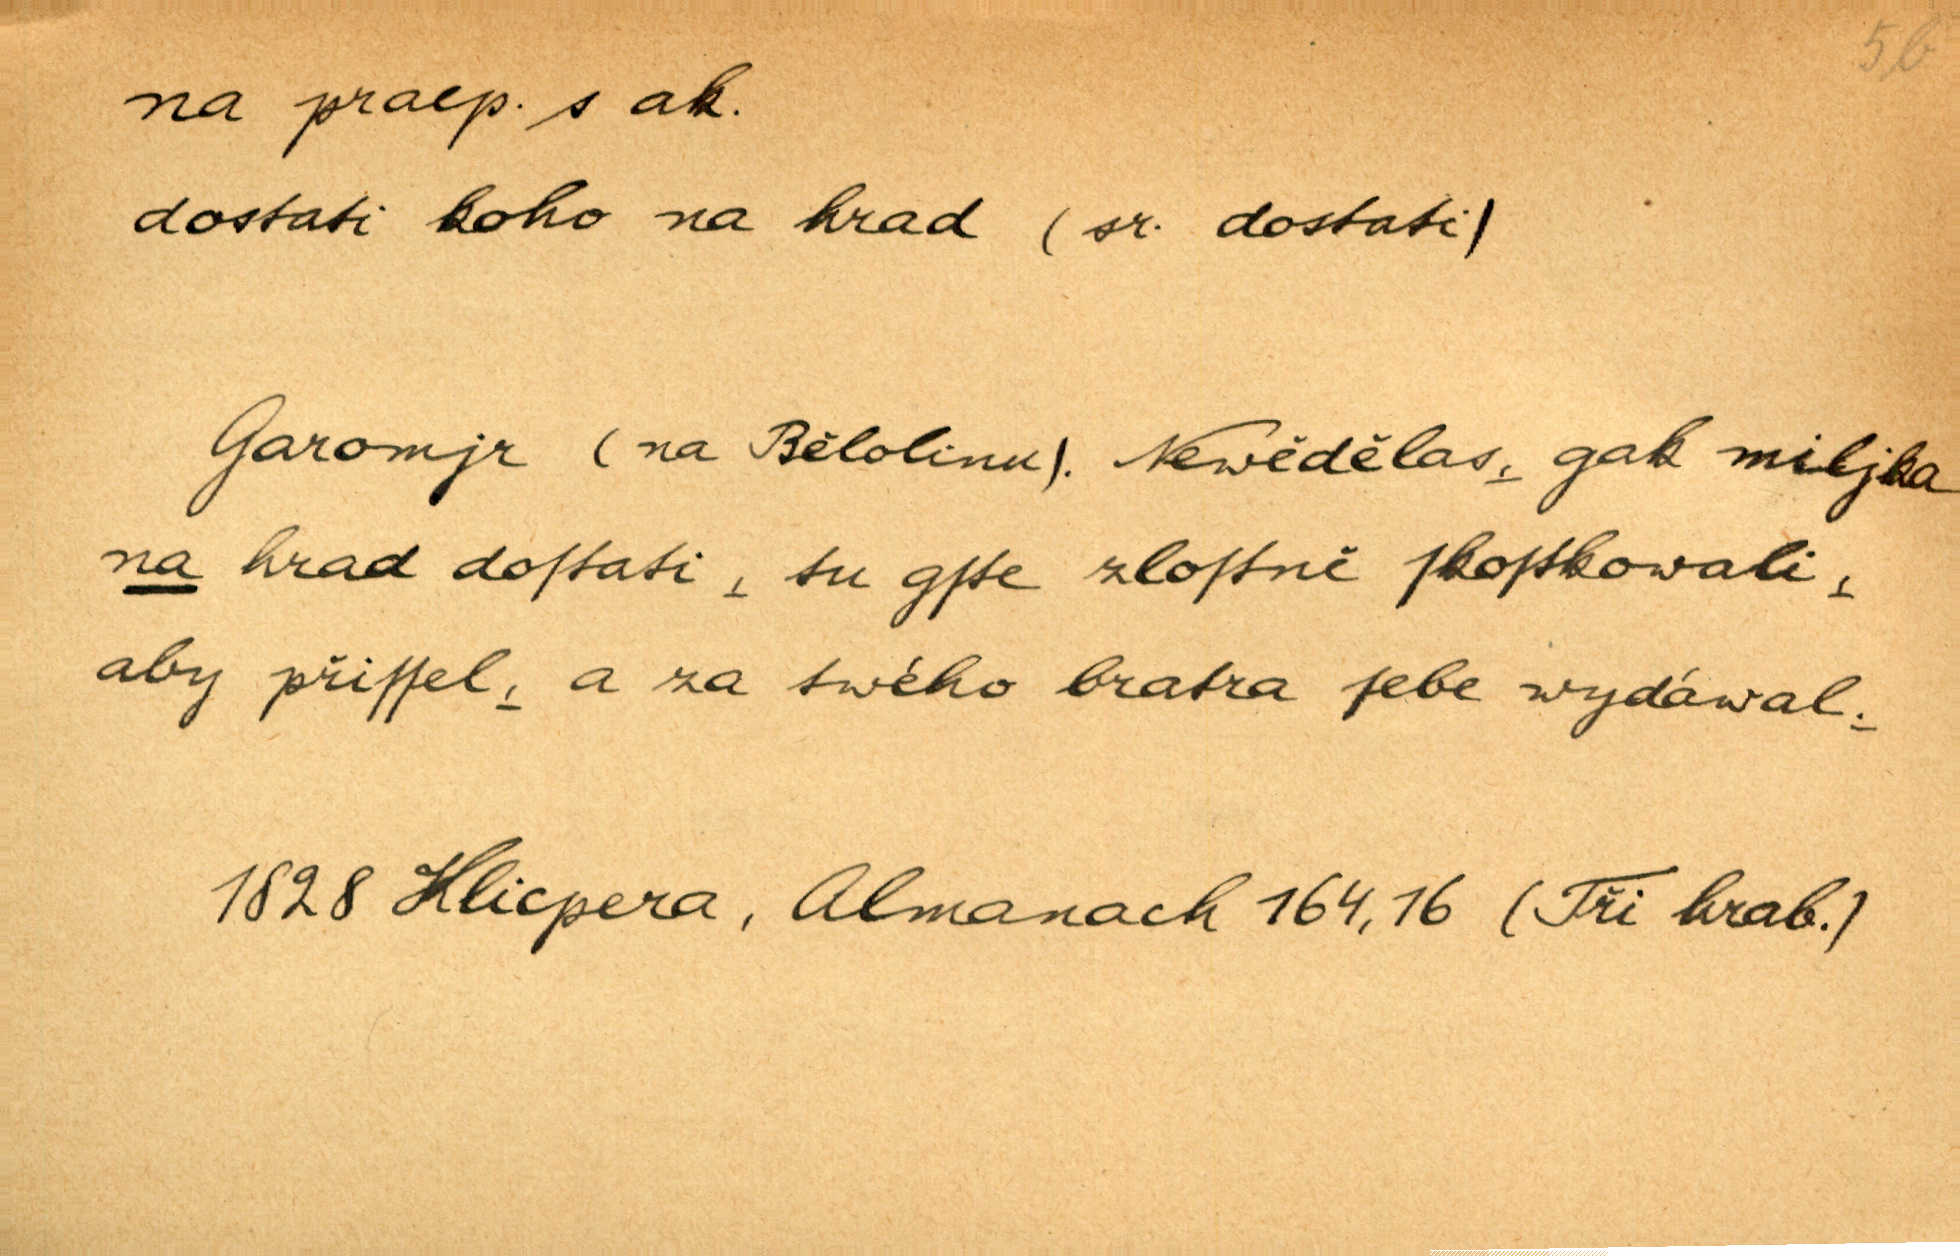 5b
na praep. s ak.
dostati koho na hrad (sr. dostati)
Garomjr (na Bělolinu). Newědělas, gak miljka
na hrad doſtati, tu gſte zloſtně ſkoſtkowali,
aby přiſſel, a za twého bratra ſebe wydáwal.
1828 Klicpera, Almanach 164,16 (Tři hrab.)